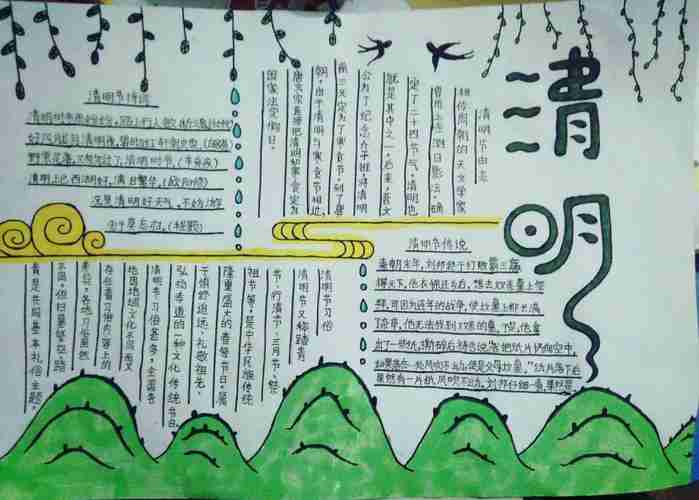 清明
清明节诗词
清明时节雨纷纷,路上行人欲断魂(杜牧)
好风胧月清明夜,碧砌红轩刺史家.(白居易)
野棠花落,又匆匆过了,清明时节.(辛弃疾)
清明上巳西湖好,满目繁华,(欧阳修)
况是清明好天气,不妨游
莫忘归.(程颢)
清明节由来
相传周朝的天文学家
曾用土圭测日影法确
定了二十四节气,清明也
就是其中之一。后来,晋文
公为了纪念介子推,将清明
前一天定为了寒食节,到了唐
朝,由于清明与寒食节相近,
唐玄宗直接把清明和寒食定为
国家法定假日。
清明节传说
秦朝末年,刘邦终于打败
得天下,他衣锦还乡后,想去双亲墓上祭
拜,可因为连年的战争,使坟墓上都长满
了杂草,他无法找到父亲的墓,于是,他拿
出了一张纸,撕碎后祷告说:将把纸片仍向空中,
如果落在一处风吹不动,便是父母坟墓,"纸片落下后
果然有一片纸风吹不动,刘邦仔细一看,果然是
清明节习俗
清明节又称踏青
节、行清节、三月节、祭
祖节等,是中华民族传统
隆重盛大的春祭节日,属
于慎终追远、礼敬祖先、
弘扬孝道的一种文化传统节日。
清明节习俗甚多,全国各
地因地域文化不同而又
存在着习俗内容上的
差异,各地习俗虽然
不同,但扫墓祭祖踏
青是共同基本礼俗主题。